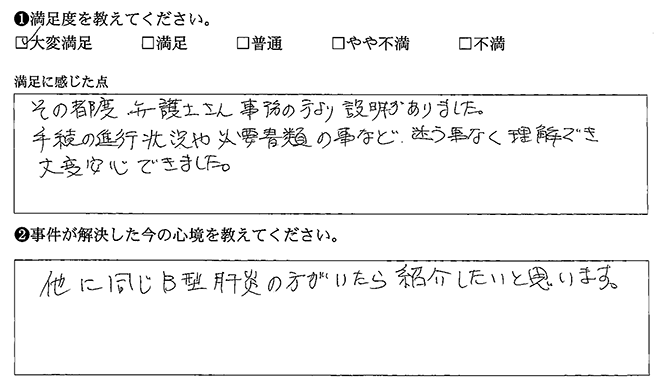 ❶満足度を教えてください。
☑大変満足 □満足 □普通 □やや不満 □不満
満足に感じた点
その都度、弁護士さん 事務の方より 説明がありました。
手続の進行状況や必要書類の事など、迷う事なく理解でき
大変安心できました。
❷事件が解決した今の心境を教えてください。
他に同じB型肝炎の方がいたら紹介したいと思います。